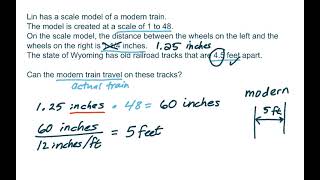 Lin has a scale model of a modern train.
The model is created at a scale of 1 to 48.
On the scale model, the distance between the wheels on the left and the
wheels on the right is inches. 1.25 inches
The state of Wyoming has old railroad tracks that are 4.5 feet apart.
Can the modern train travel on these tracks?
actual train
1.25 inches • 48 = 60 inches
60 inches
12 inches/ft
= 5 feet
modern
5 ft